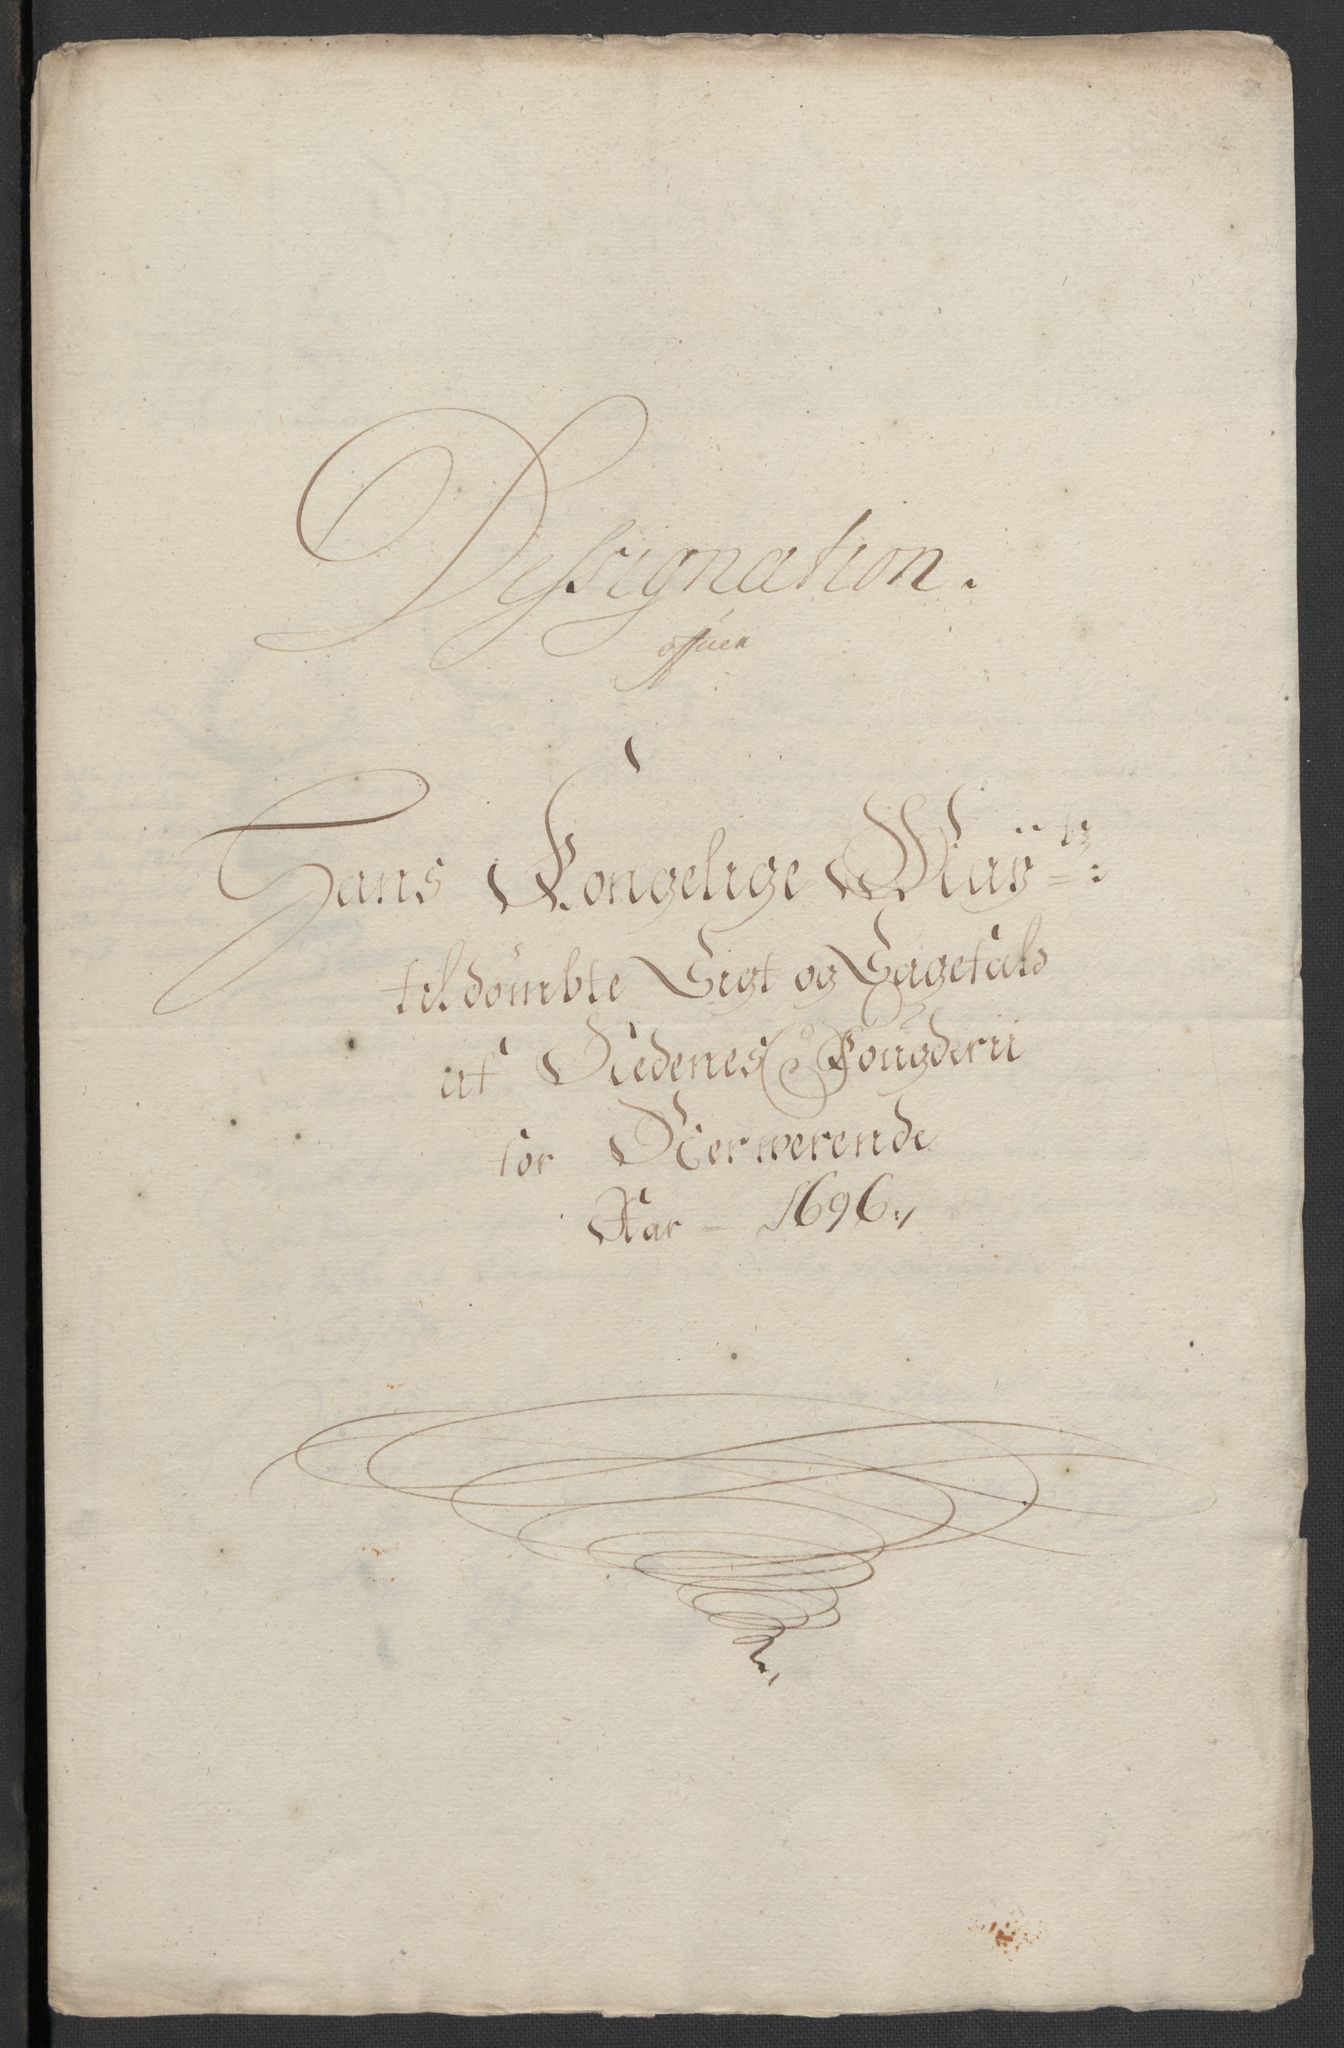 Dessignation.
offuer
Hans Kongelige Mayᵗᶻ:
tildömbte Sigt og Sagefald
af Nedenes Fougderii
for Nerwerende
Aar – 1696:/